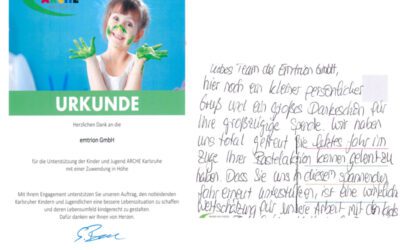 ARCHE
URKUNDE
Herzlichen Dank an die
emtrion GmbH
für die Unterstützung der Kinder und Jugend ARCHE Karlsruhe
mit einer Zuwendung in Höhe
Mit Ihrem Engagement unterstützen Sie unseren Auftrag, den notleidenden
Karlsruher Kindern und Jugendlichen eine bessere Lebenssituation zu schaffen
und deren Lebensumfeld kindgerecht zu gestalten.
Dafür danken wir Ihnen von Herzen.
Liebes Team der Emtrion GmbH,
hier noch ein kleiner persönlicher
Gruß und ein großes Dankeschön für
Ihre großzügige Spende. Wir haben
uns total gefreut Sie letztes Jahr im
Zuge Ihrer Bastelaktion kennen gelernt zu
haben. Dass Sie uns in diesem spannenden
Jahr erneut unterstützen, ist eine wirkliche
Wertschätzung für unsere Arbeit mit den Kids